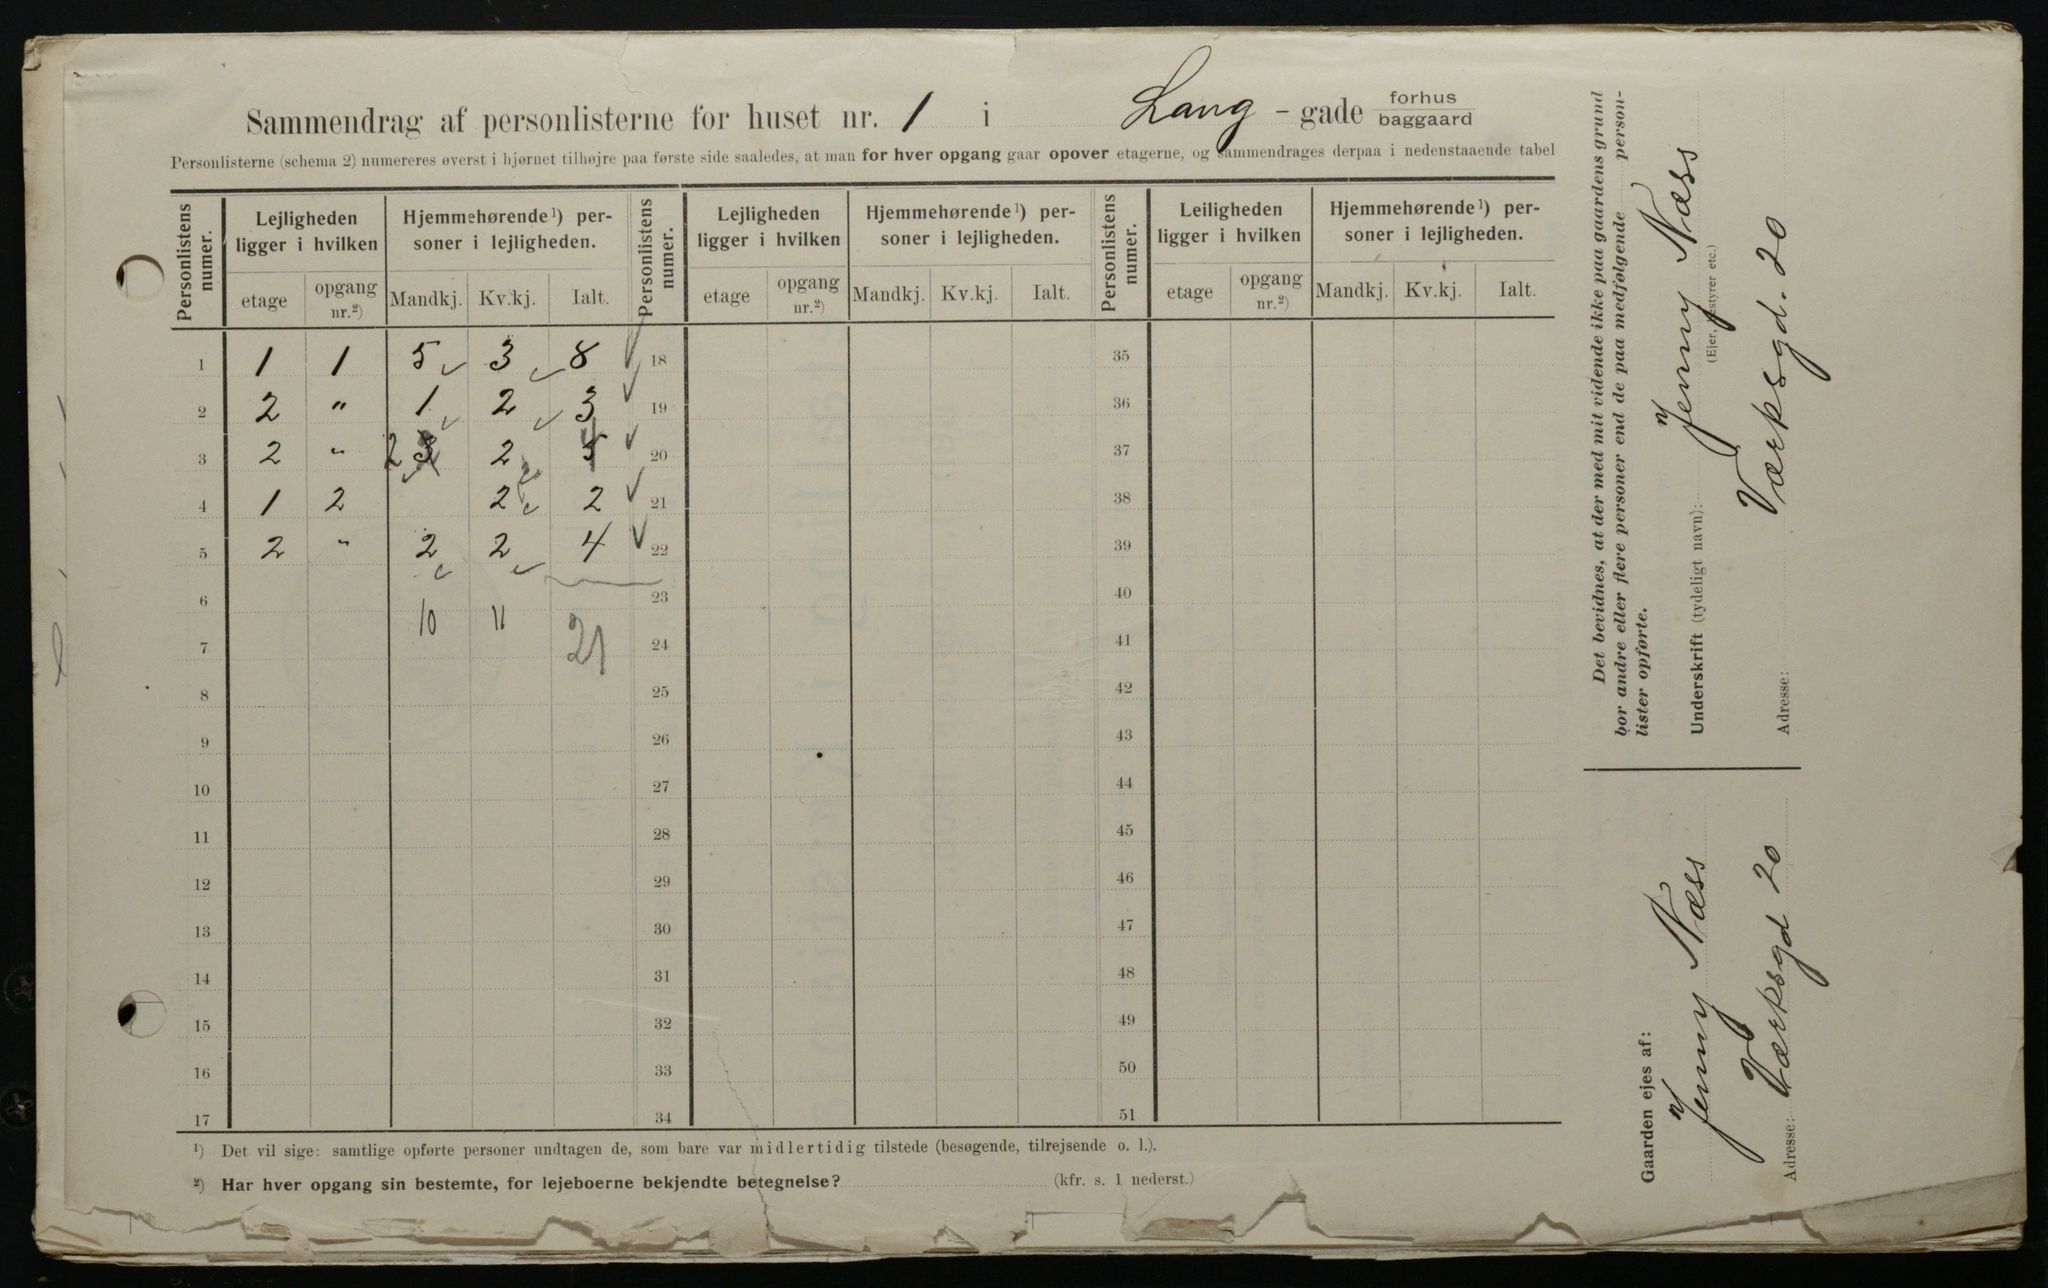 Sammendrag af personlisterne for huset nr. 1 i Lang - gade forhus baggaard
Personlisterne (schema 2) numereres øverst i hjørnet tilhøjre paa første side saaledes, at man for hver opgang gaar opover etagerne, og sammendrages derpaa i nedenstaaende tabel
Personlistens numer. Lejligheden ligger i hvilken Hjemmehørende ¹) personer i lejligheden. Personlistens numer. Lejligheden ligger i hvilken Hjemmehørende ¹) personer i lejligheden. Personlistens numer. Leiligheden ligger i hvilken Hjemmehørende ¹) personer i lejligheden.
etage opgang nr.²) Mandkj. Kv.kj. Ialt. etage opgang nr.²) Mandkj. Kv.kj. Ialt. etage opgang nr.²) Mandkj. Kv.kj. Ialt.
1 1 1 5 3 8 18 35
2 2 " 1 2 3 19 36
3 2 " 2 3 2 5 20 37
4 1 2 2 2 21 38
5 2 " 2 2 4 22 39
6 10 11 23 40
7 21 24 41
8 25 42
9 26 43
10 27 44
11 28 45
12 29 46
13 30 47
14 31 48
15 32 49
16 33 50
17 34 51
¹) Det vil sige: samtlige opførte personer undtagen de, som bare var midlertidig tilstede (besøgende, tilrejsende o. l.).
²) Har hver opgang sin bestemte, for lejeboerne bekjendte betegnelse? (kfr. s. 1 nederst.)
Det bevidnes, at der med mit vidende ikke paa gaardens grund
bor andre eller flere personer end de paa medfølgende personlister opførte.
Underskrift (tydeligt navn): Jenny Næss
(Ejer, bestyrer etc.)
Adresse: Værksgd. 20
Gaarden ejes af: Jenny Næss
Adresse: Værksgd 20